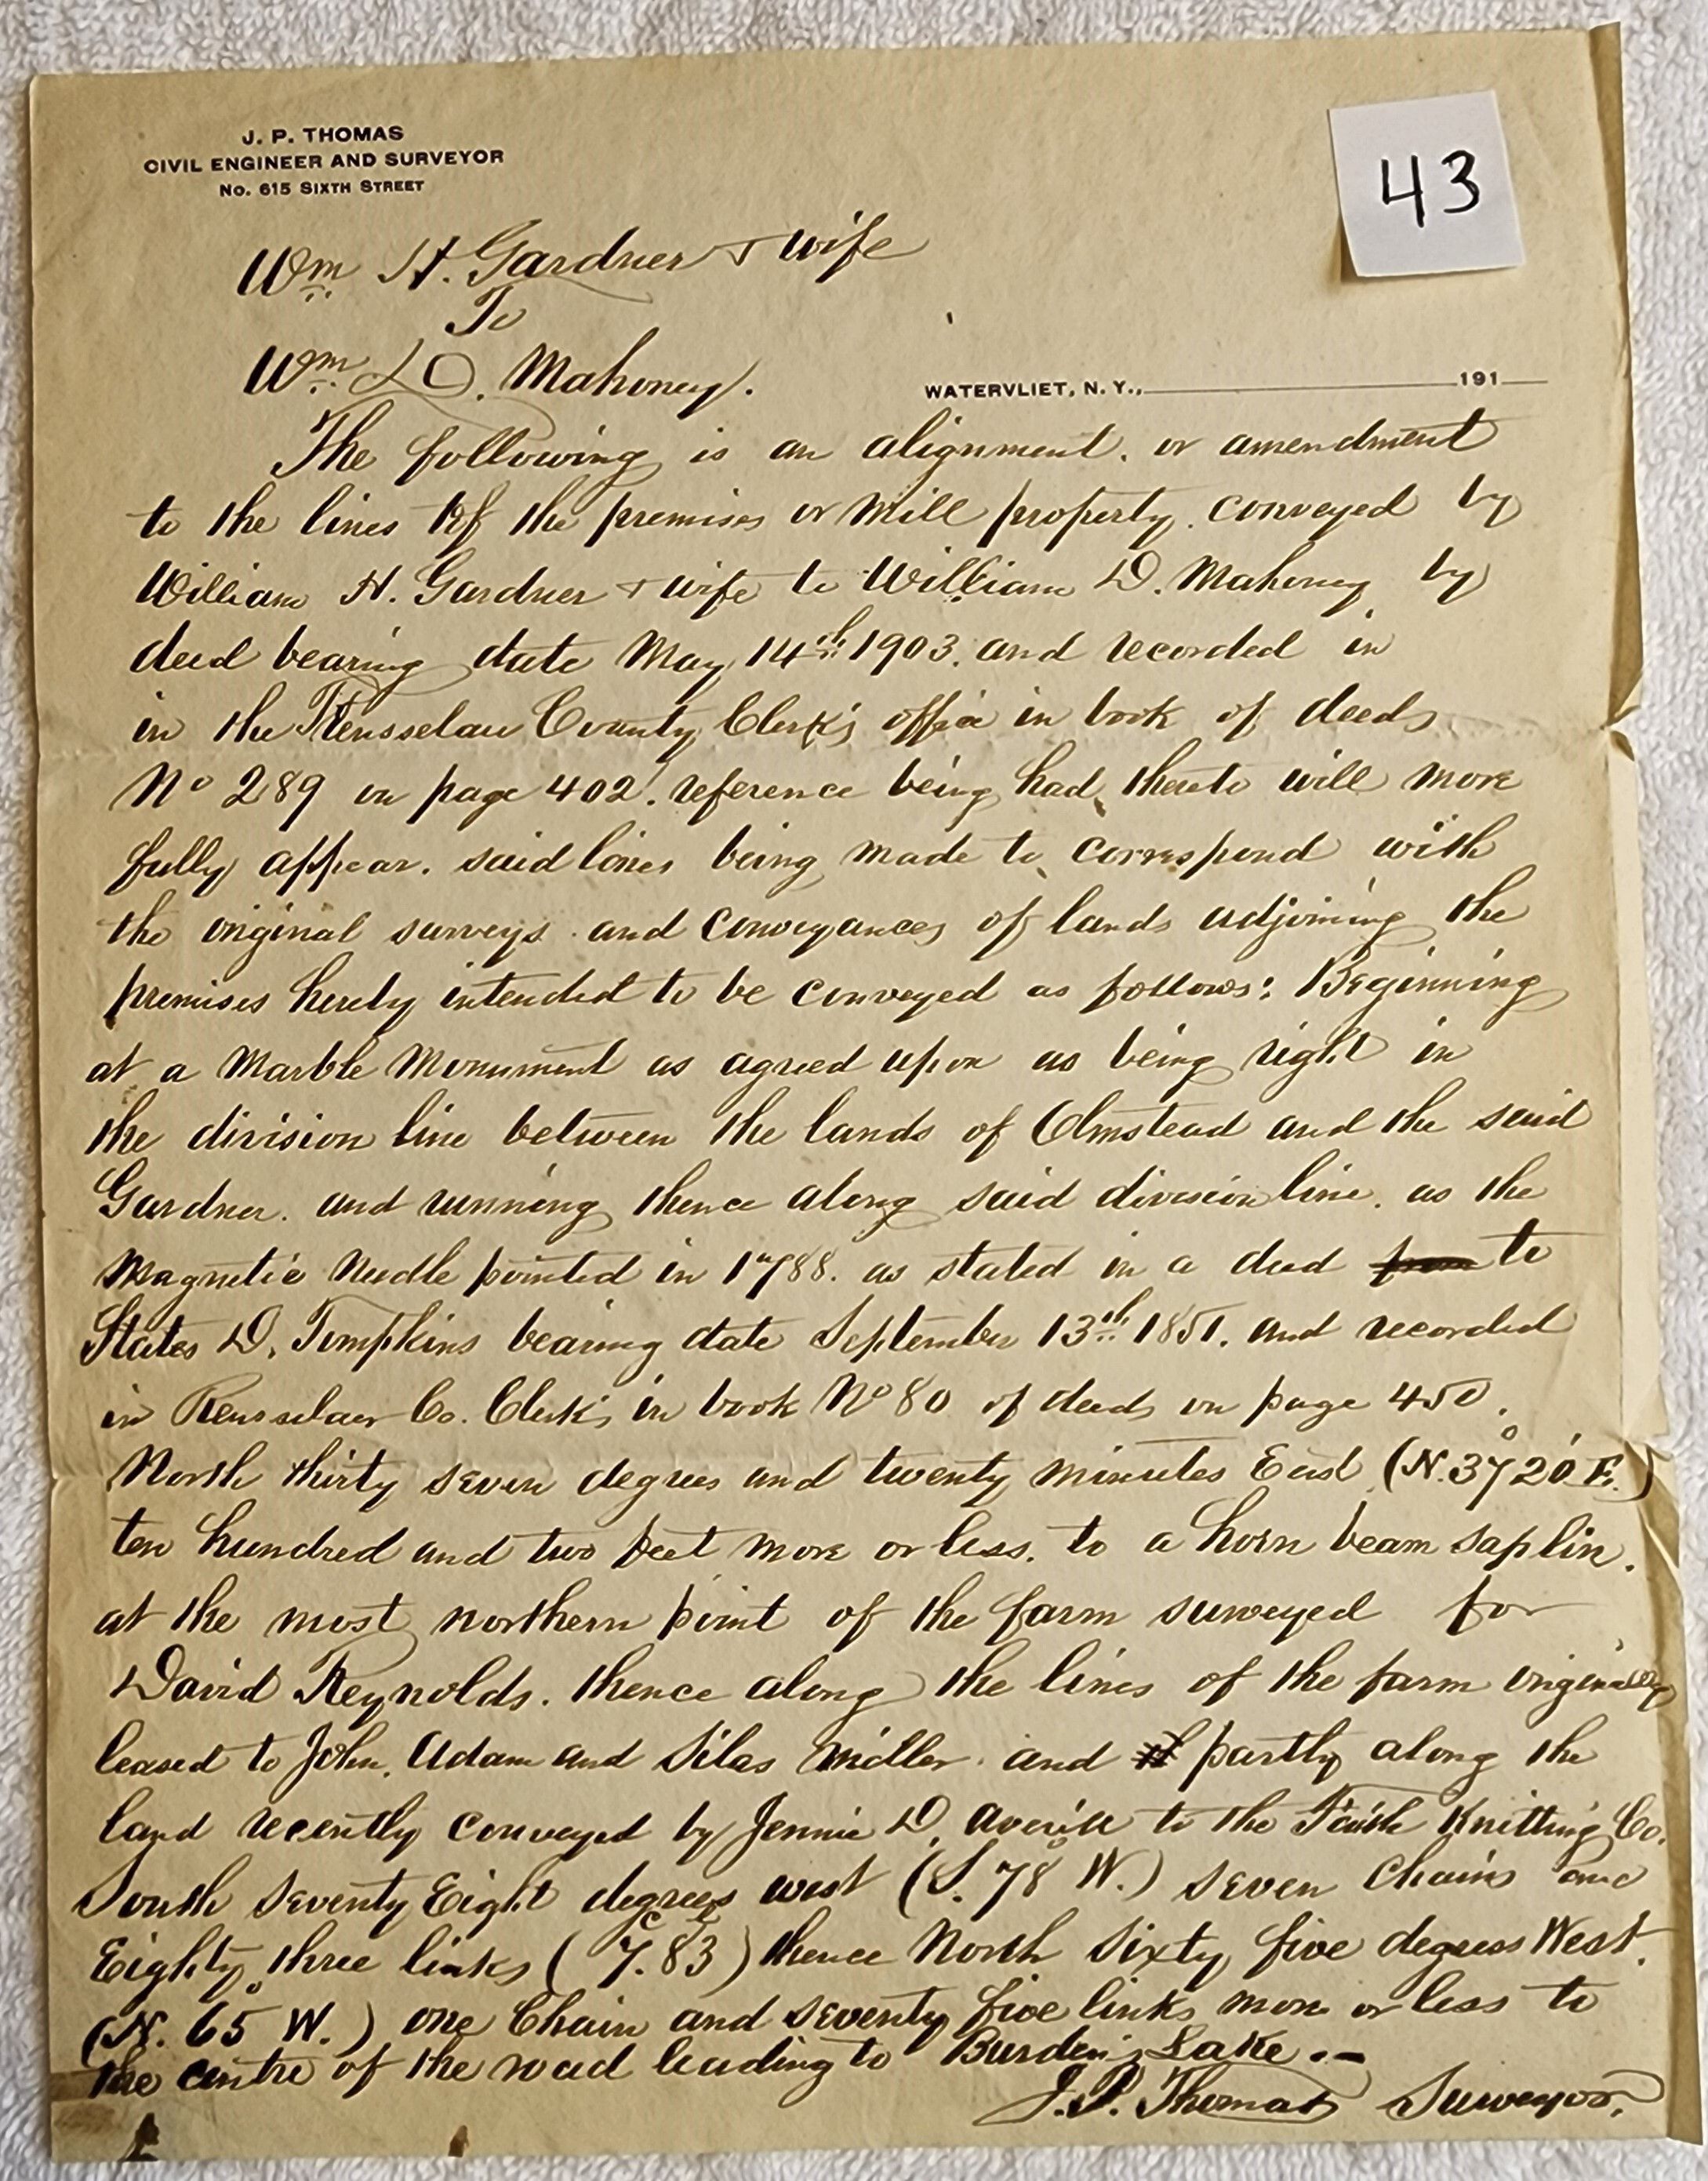 J. P. THOMAS
CIVIL ENGINEER AND SURVEYOR
No. 615 SIXTH STREET
43
Wm H. Gardner & wife
To
Wm D. Mahoney.
WATERVLIET, N. Y., 191
The following is an alignment. or amendment
to the lines of the premises or Mill property. conveyed by
William H. Gardner & wife to William D. Mahoney by
deed bearing date May 14th 1903. and recorded in
in the Rensselaer County Clerk's office in book of deeds
No 289 on page 402. reference being had thereto will more
fully appear. said lines being made to correspond with
the original surveys. and conveyances of lands adjoining the
premises hereby intended to be conveyed as follows: Beginning
at a Marble Monument as agreed upon as being right in
the division line between the lands of Olmstead and the said
Gardner. and running thence along said division line. as the
Magnetic Needle pointed in 1788. as stated in a deed from to
States D. Tompkins bearing date September 13th 1851. and recorded
in Rensselaer Co. Clerk's in book No 80 of deeds on page 450.
North thirty seven degrees and twenty minutes East (N. 37° 20' E.)
ten hundred and two feet more or less. to a horn beam saplin.
at the most northern point of the farm surveyed for
David Reynolds. thence along the lines of the farm originally
leased to John, Adam and Silas Miller. and partly along the
land recently conveyed by Jennie D. Averill to the Faith Knitting Co.
South seventy Eight degrees west (S. 78° W.) seven Chains and
Eighty three links (7.83) thence North Sixty five degrees West.
(N. 65° W.) one Chain and seventy five links more or less to
the centre of the road leading to Burden's Lake.
J. P. Thomas Surveyor.